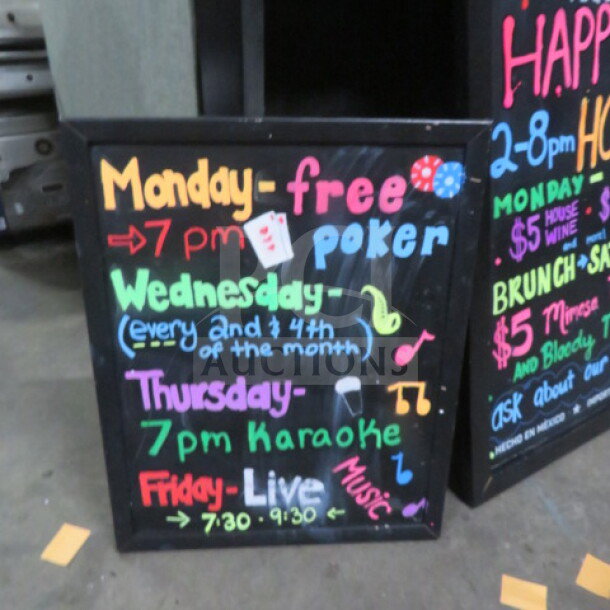 Monday - free
⇒ 7 pm poker
Wednesday -
(every 2nd & 4th
of the month)
Thursday -
7pm Karaoke
Friday - Live
Music
→ 7:30 - 9:30 ←
HAPP
2-8pm HO
MONDAY -
$5 HOUSE WINE $
BRUNCH → SA
$5 Mimosa
AND Bloody
ask about our
HECHO EN MÉXICO ★
AUCTIONS